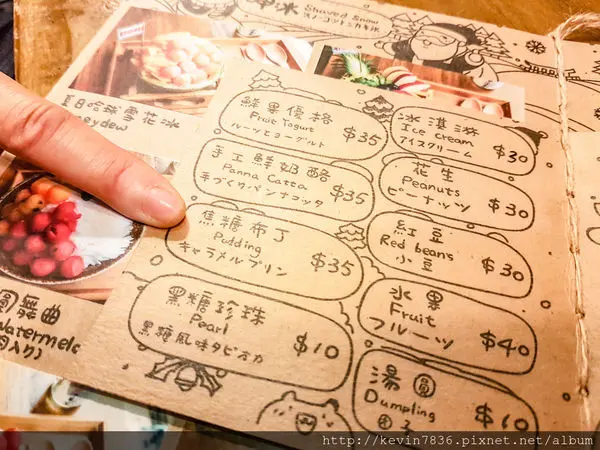 冰
Shaved Snow
鮮果優格
Fruit Yogurt
フルーツとヨーグルト
$35
手工鮮奶酪
Panna Catta
手づくりパンナコッタ
$35
焦糖布丁
Pudding
キャラメルプリン
$35
黑糖珍珠
Pearl
黒糖風味タピオカ
$10
冰淇淋
Ice cream
アイスクリーム
$30
花生
Peanuts
ピーナッツ
$30
紅豆
Red beans
小豆
$30
水果
Fruit
フルーツ
$40
湯圓
Dumpling
団子
$10
夏日哈密雪花冰
圓舞曲
Watermelo
肉入り)
http://kevin7836.pixnet.net/album